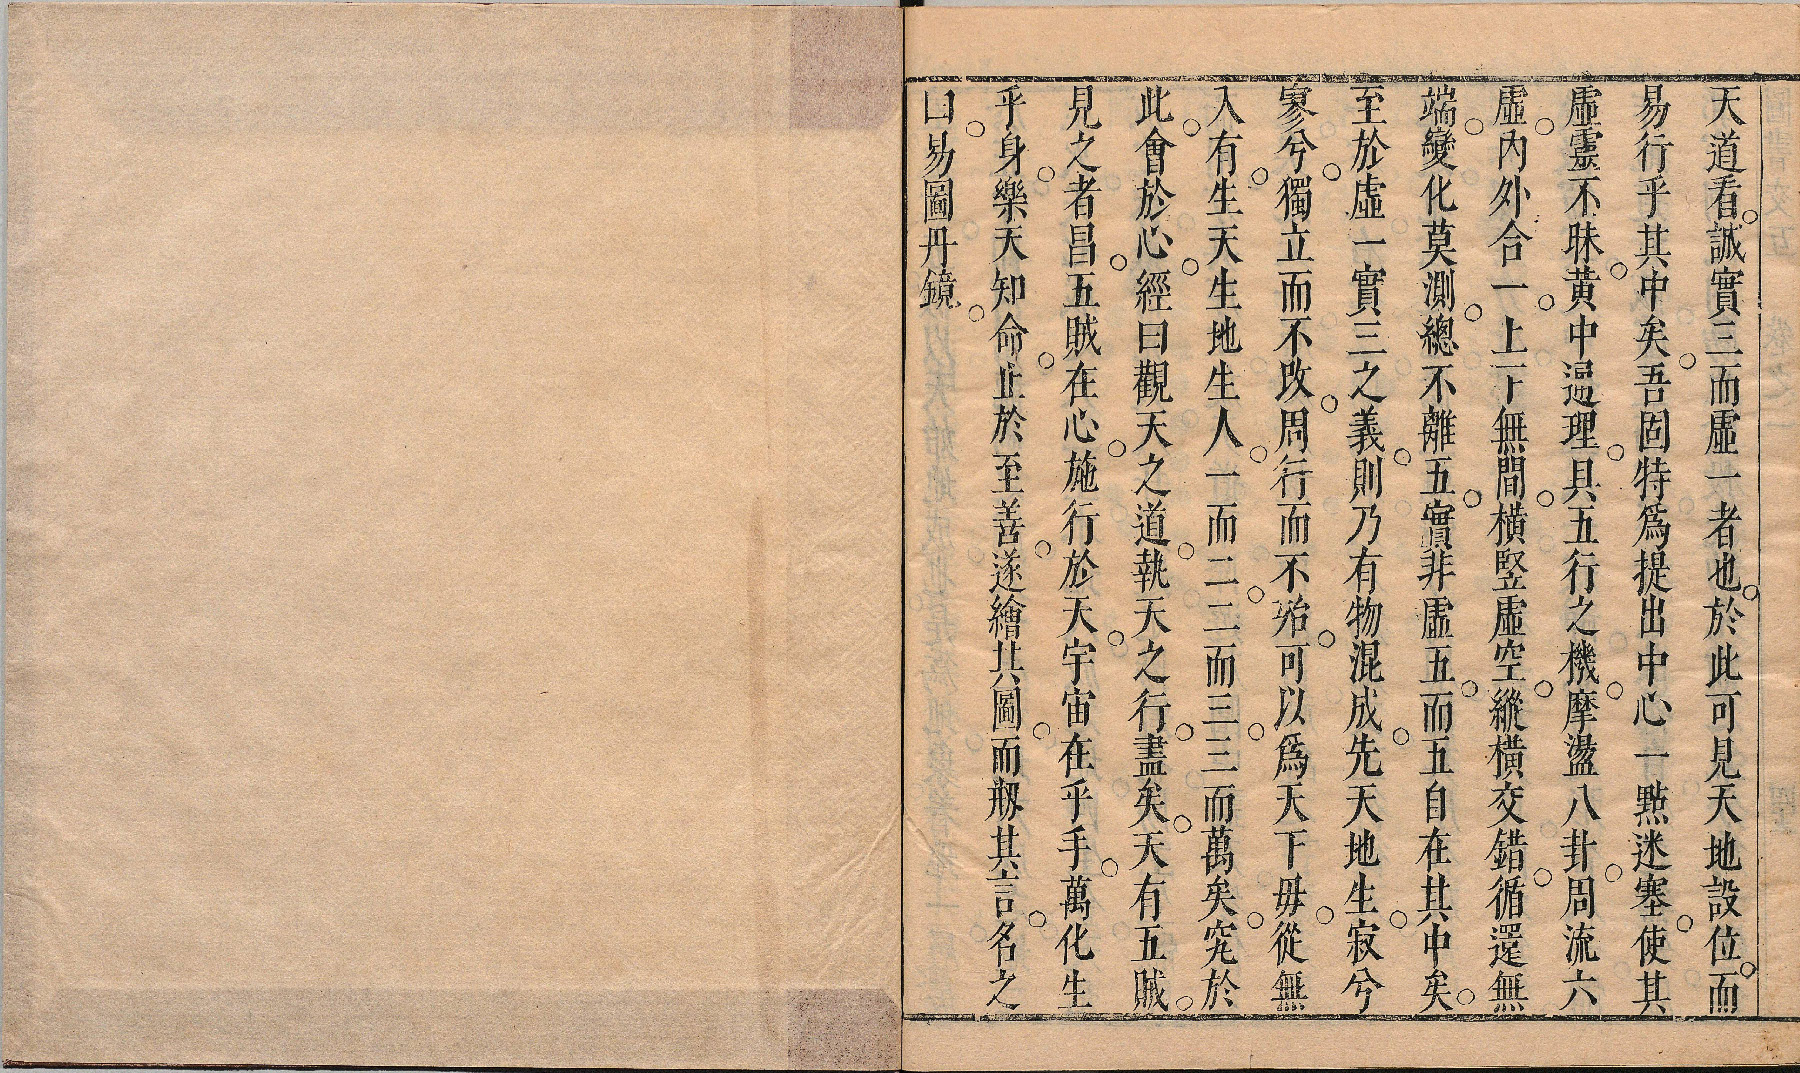 天道看誠實三而虛一者也於此可見天地設位而
易行乎其中矣吾固特為提出中心一點迷塞使其
虛靈不昧黃中通理具五行之機摩盪八卦周流六
虛內外合一上下無間橫豎虛空縱橫交錯循還無
端變化莫測總不離五實非虛五而五自在其中矣
至於虛一實三之義則乃有物混成先天地生寂兮
寥兮獨立而不改周行而不殆可以為天下毋從無
入有生天生地生人一而二二而三三而萬矣究於
此會於心經曰觀天之道執天之行盡矣天有五賊
見之者昌五賊在心施行於天宇宙在乎手萬化生
乎身樂天知命止於至善遂繪其圖而剏其言名之
曰易圖丹鏡